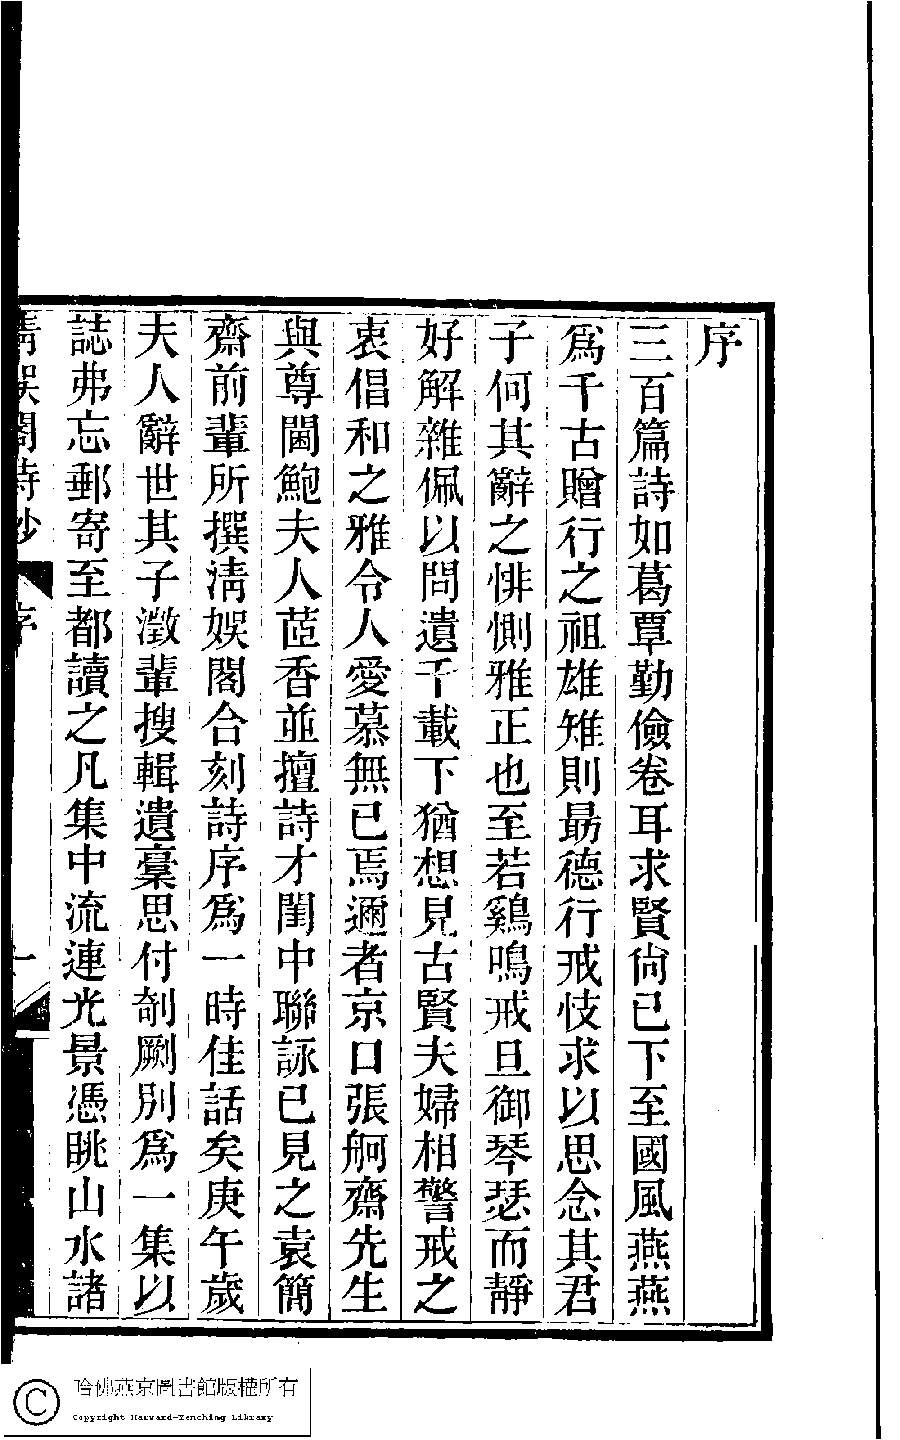 序
三百篇詩如葛覃勤儉卷耳求賢尙已下至國風燕燕
爲千古贈行之祖雄雉則最德行戒忮求以思念其君
子何其辭之悱惻雅正也至若鷄鳴戒旦御琴瑟而靜
好解雜佩以問遺千載下猶想見古賢夫婦相警戒之
衷倡和之雅令人愛慕無已焉邇者京口張舸齋先生
與尊閫鮑夫人茝香並擅詩才閨中聯詠已見之袁簡
齋前輩所撰淸娛閣合刻詩序爲一時佳話矣庚午歲
夫人辭世其子澂輩搜輯遺稾思付剞劂別爲一集以
誌弗忘郵寄至都讀之凡集中流連光景憑眺山水諸
淸娛閣詩鈔
序
一
哈佛燕京圖書館版權所有
Copyright Harvard-Yenching Library